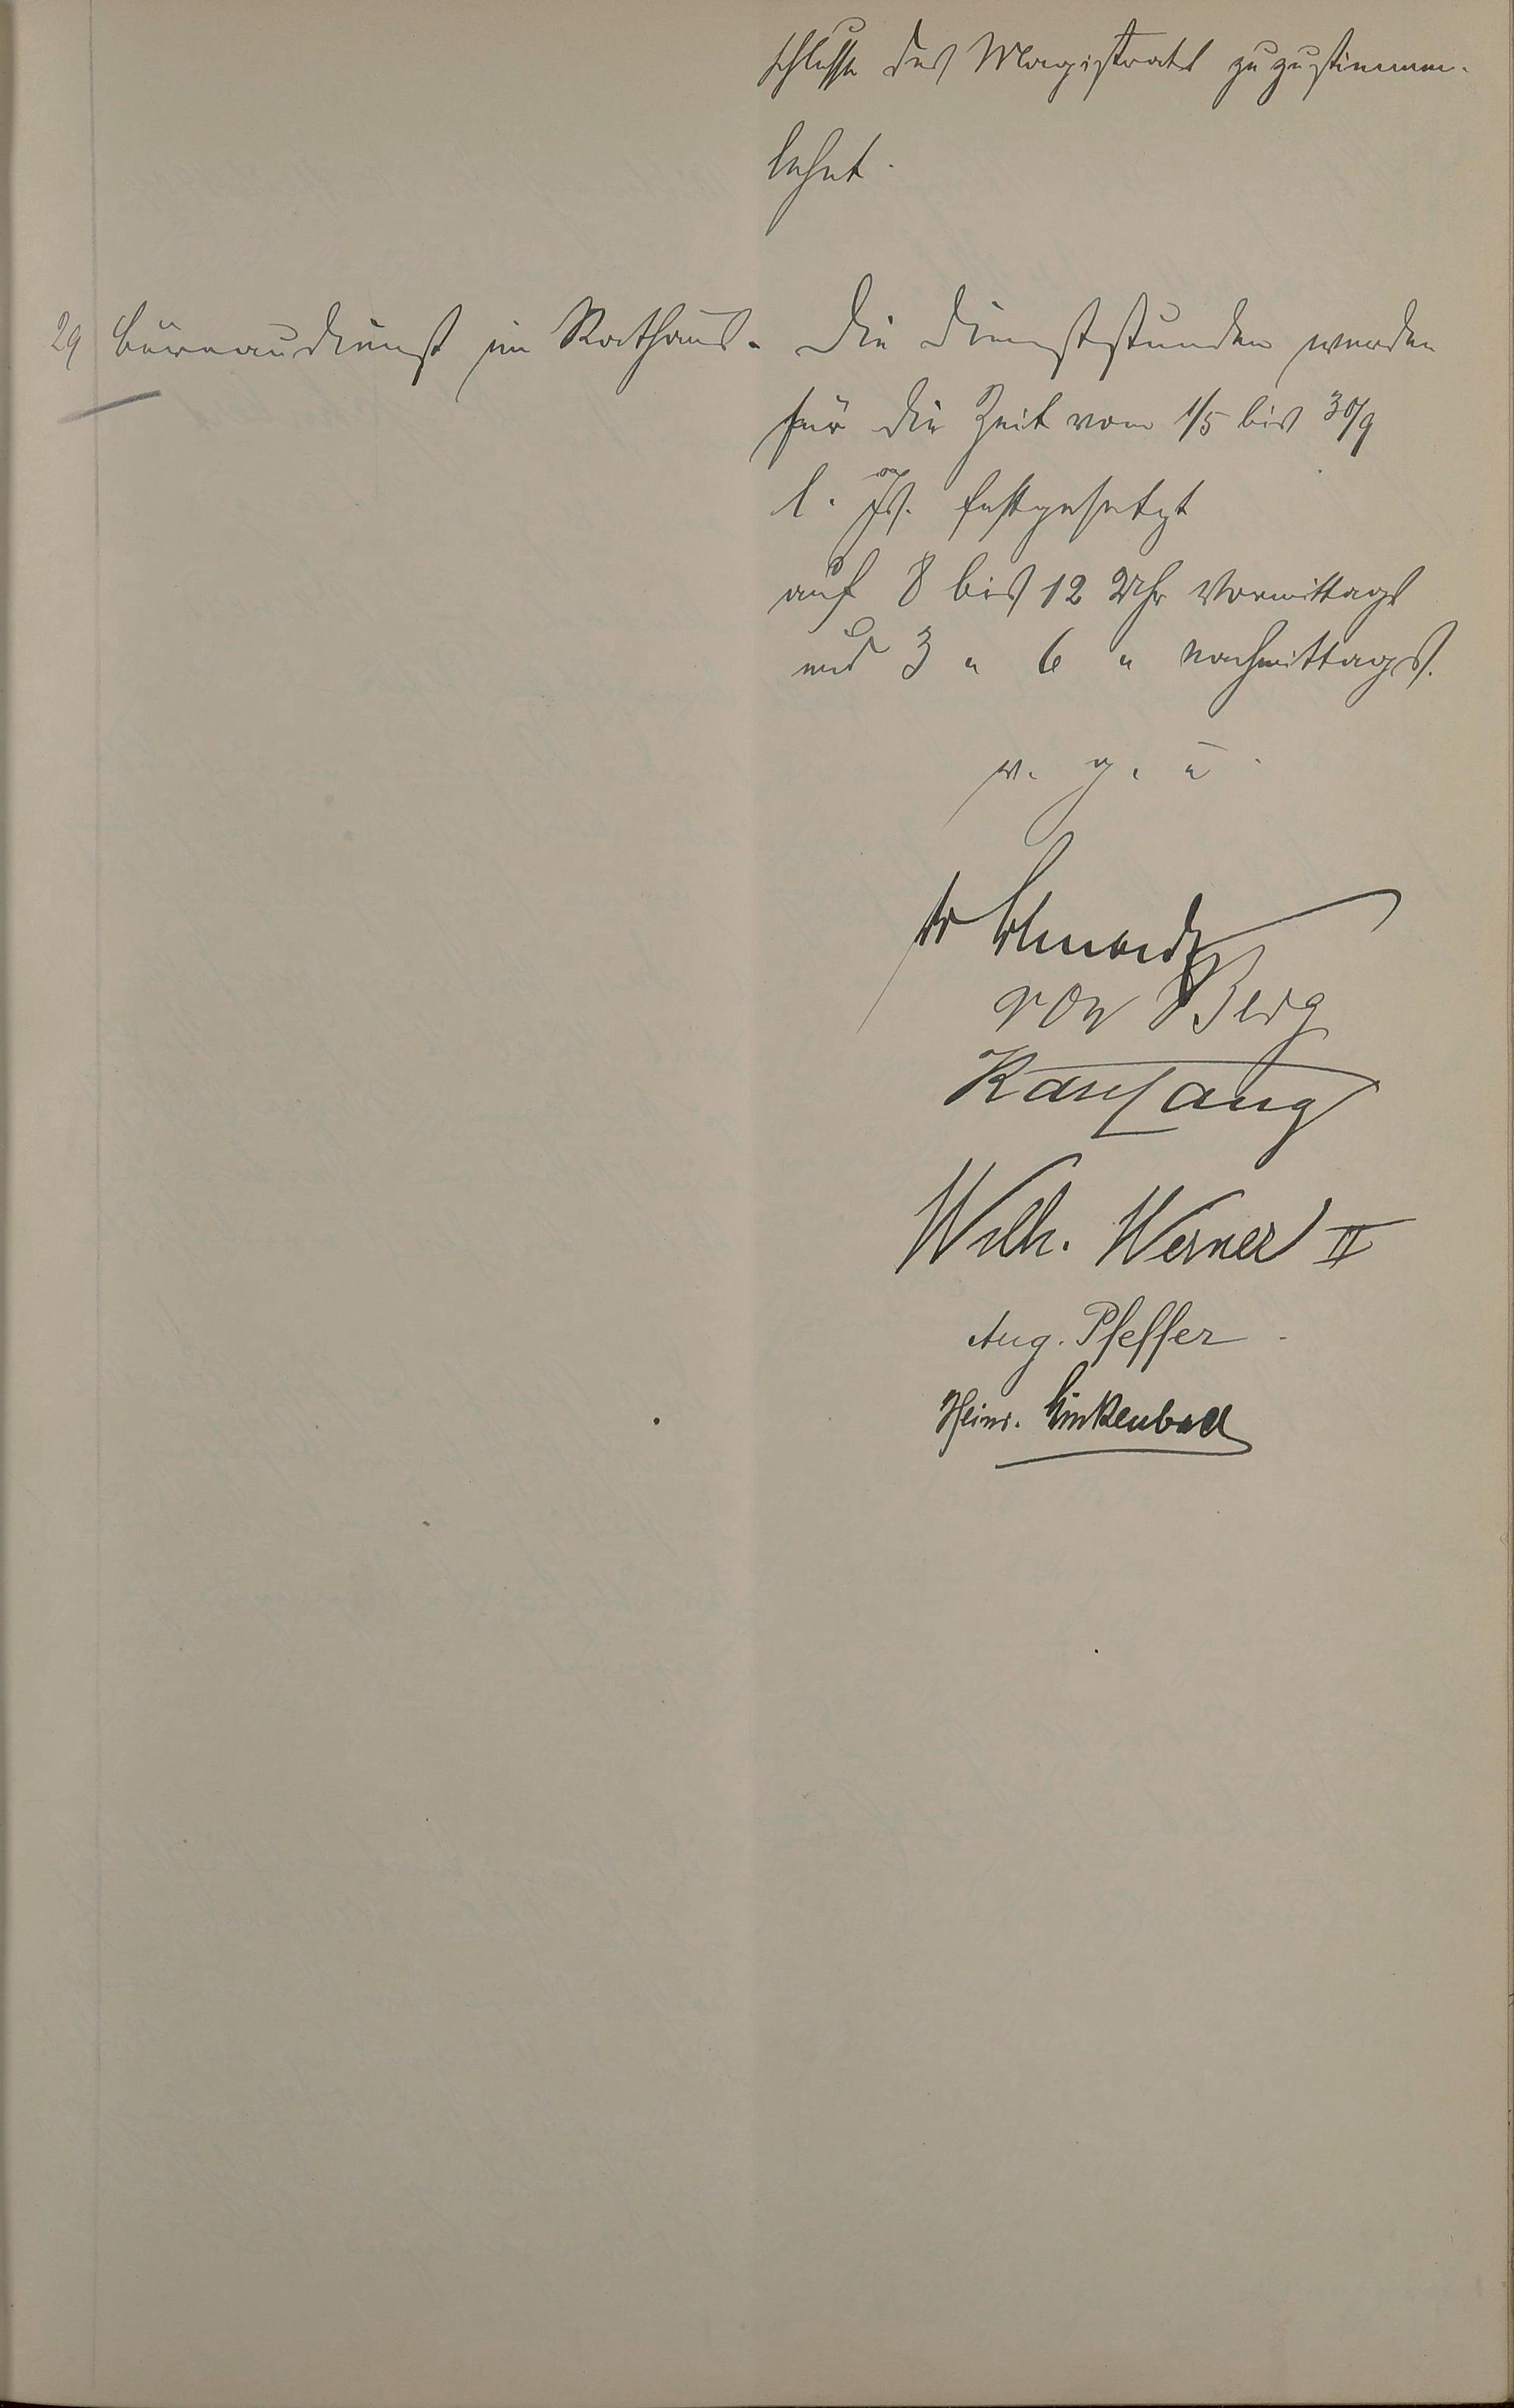 schlusse des Magistrats zuzustimmen.
lehnt.
29 Büreaudienst im Rathaus.
Die Dienststunden werden
für die Zeit vom 1/5 bis 30/9
l. Js. festgesetzt
auf 8 bis 12 Uhr Vormittags
und 3 " 6 " Nachmittags.
v. g. u.
von Berg
Karl Lang
Wilh. Werner II
Aug. Pfeffer
Heinr.